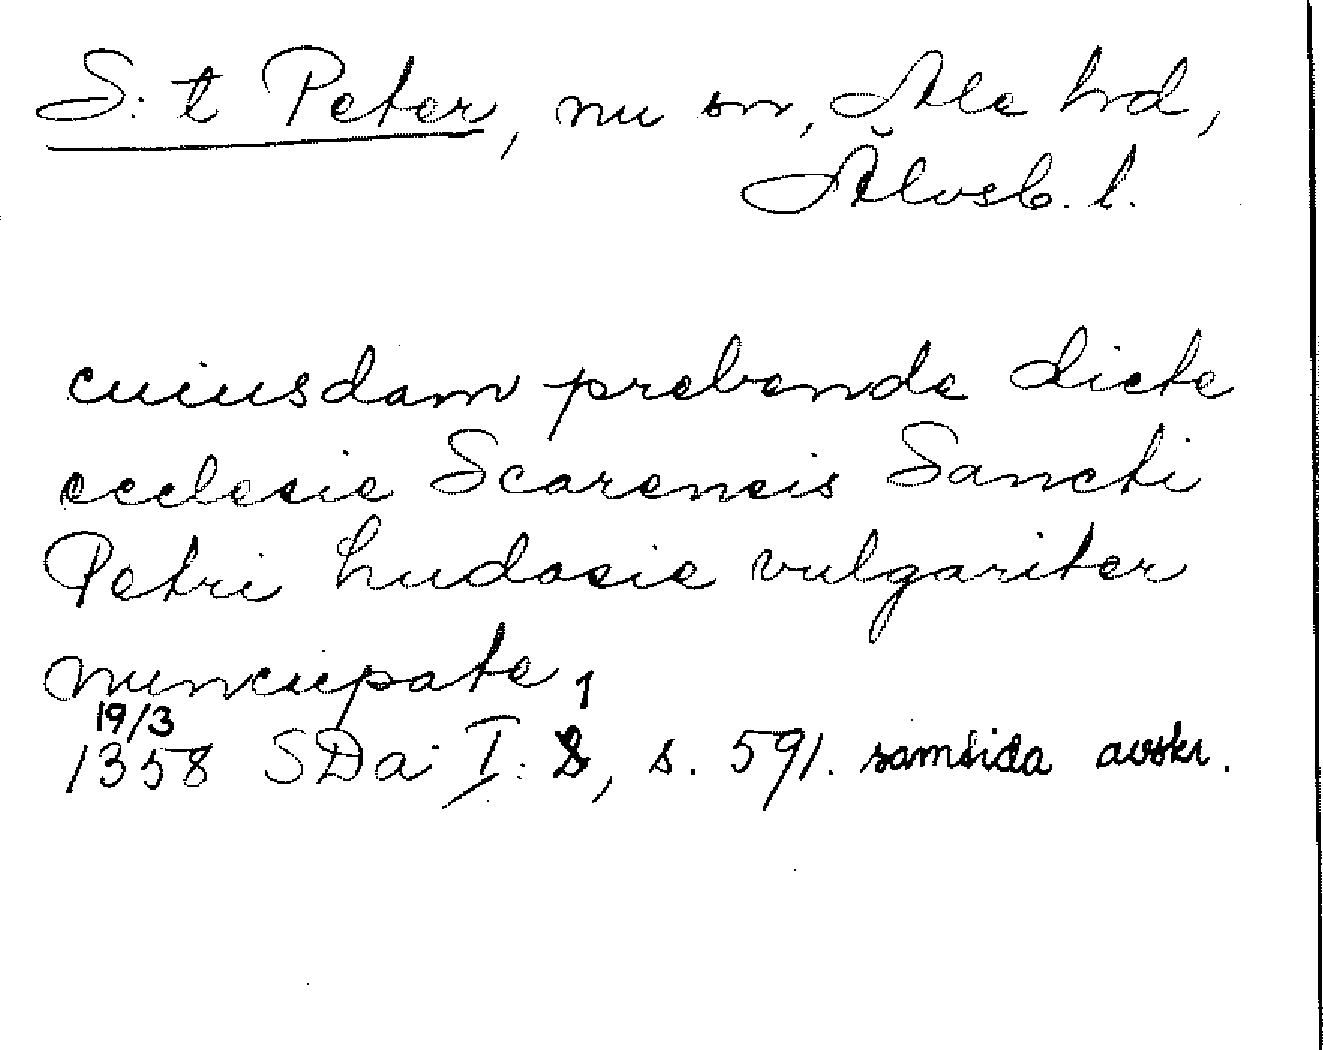 S:t Peter, nu sn, Ale hd,
Älvsb. l.
cuiusdam prebende dicte
ecclesie Scarensis Sancti
Petri hudosie vulgariter
nuncupate,
19/3
1358 SDa I: 8, s. 591. samtida avskr.